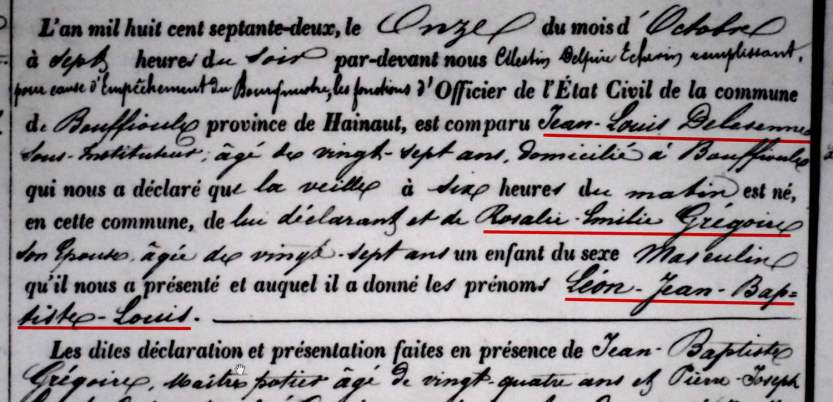 L'an mil huit cent septante-deux, le Onze du mois d'Octobre
à sept heures du soir par-devant nous Célestin Delpire Echevin remplissant,
pour cause d'Empêchement du Bourgmestre, les fonctions d'Officier de l'État Civil de la commune
de Bouffioulx province de Hainaut, est comparu Jean-Louis Delesenne
Sous-Instituteur, âgé de vingt-sept ans, domicilié à Bouffioulx
qui nous a déclaré que la veille à six heures du matin est né,
en cette commune, de lui déclarant et de Rosalie-Emilie Grégoire
son Epouse, âgée de vingt-sept ans un enfant du sexe Masculin
qu'il nous a présenté et auquel il a donné les prénoms Léon-Jean-Bap-
tiste-Louis.
Les dites déclaration et présentation faites en présence de Jean-Baptiste
Grégoire, Maître potier âgé de vingt-quatre ans et Pierre-Joseph